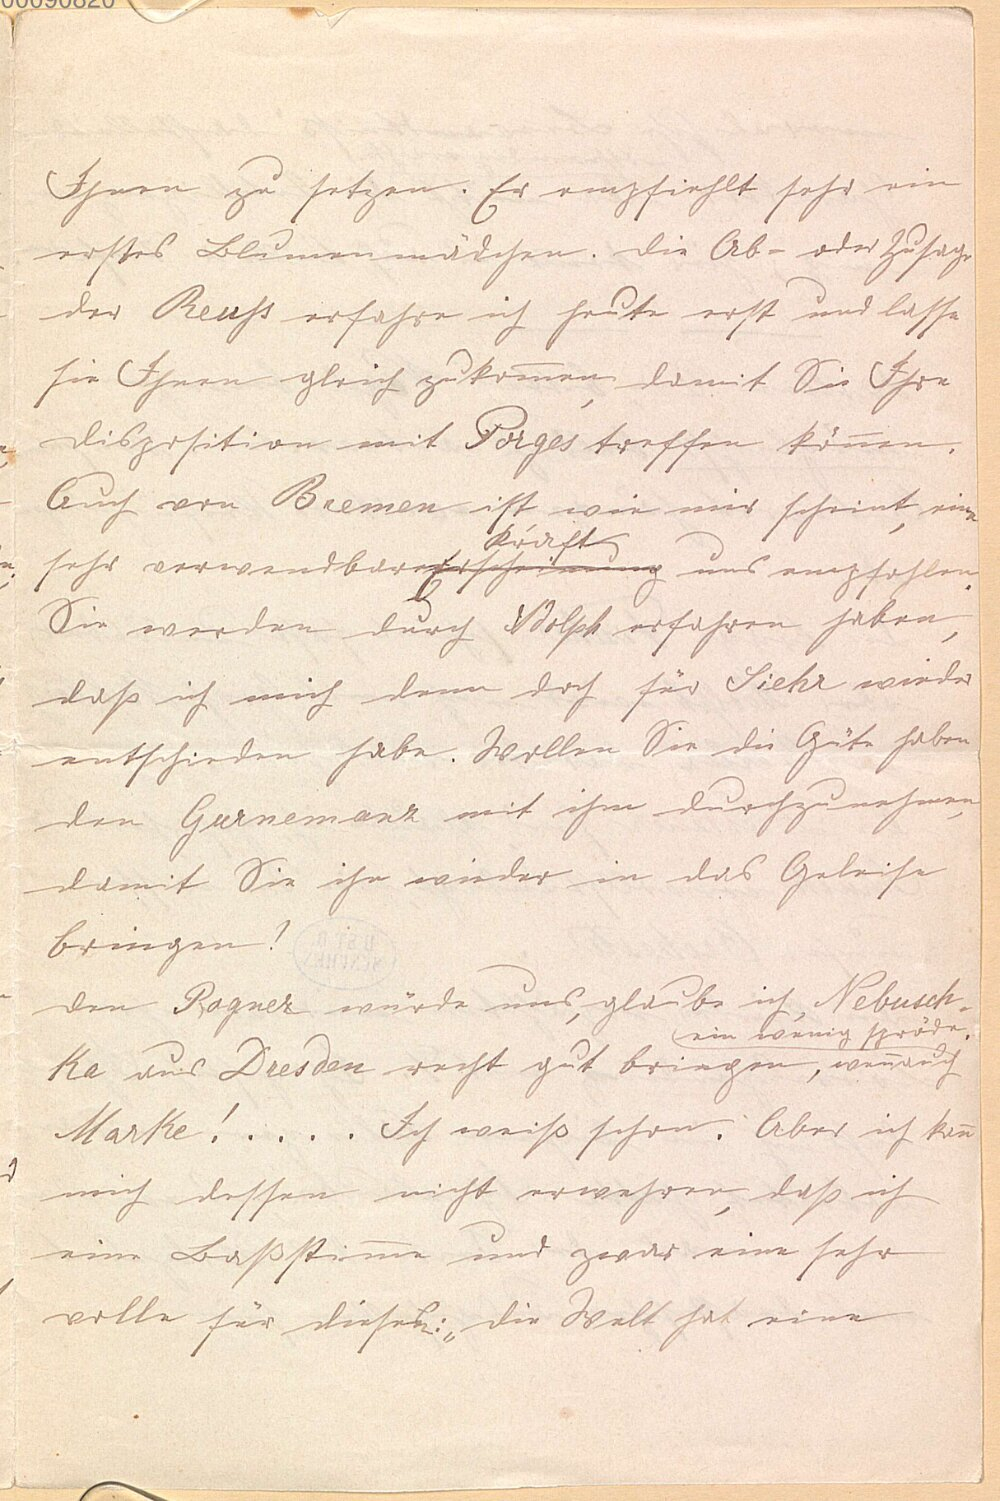 00090820
Ihnen zu setzen. Er empfiehlt sehr ein
erstes Blumenmädchen. Die Ab- oder Zusage
der Reuss erfahre ich heute erst und lasse
sie Ihnen gleich zukom̄en, damit Sie Ihre
Disposition mit Porges treffen kön̄en.
Auch von Bremen ist wie mir scheint, eine
Kraft
sehr verwendbare Erscheinung uns empfohlen.
Sie werden durch Adolph erfahren haben,
daß ich mich denn doch für Siehr wieder
entschieden habe. Wollen Sie die Güte haben
den Gurnemanz mit ihm durchzunehmen,
damit Sie ihn wieder in das Geleise
bringen!
Den Pogner würde uns, glaube ich, Nebusch-
ein wenig spröde.
ka aus Dresden recht gut bringen, wen̄ auch
Marke! . . . . . Ich weiß schon. Aber ich kan̄
mich dessen nicht erwehren, daß ich
eine Baßstim̄e und zwar eine sehr
volle für diesen: „die Welt hat eine